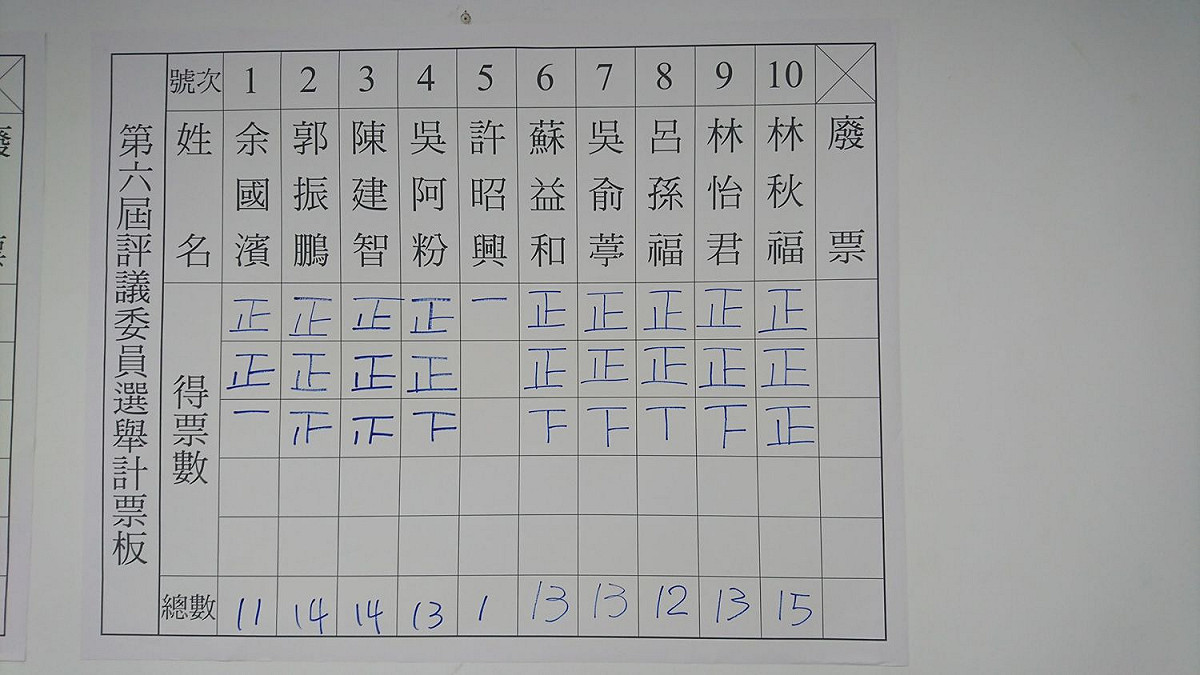 第六屆評議委員選舉計票板
號次 1 2 3 4 5 6 7 8 9 10
姓名 余國濱 郭振鵬 陳建智 吳阿粉 許昭興 蘇益和 吳俞葶 呂孫福 林怡君 林秋福 廢票
得票數
正 正 正 正 一 正 正 正 正 正
正 正 正 正 正 正 正 正 正
一 下 下 丅 下 正
總數 11 14 14 13 1 13 13 12 13 15
廢票